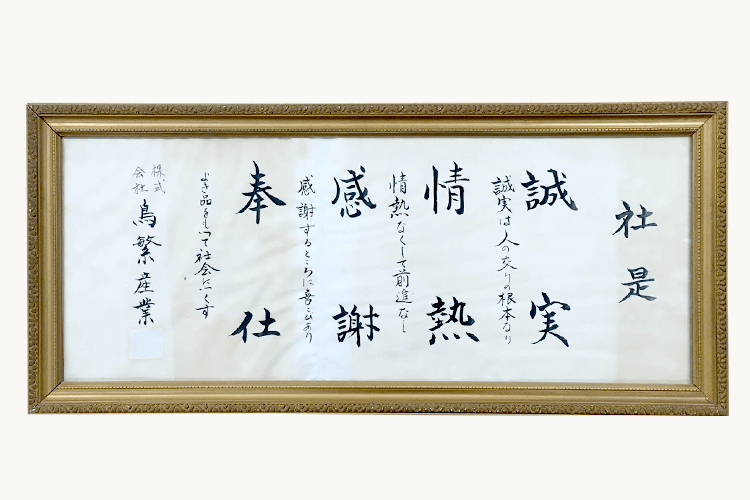 社是
誠実
誠実は人の交りの根本なり
情熱
情熱なくして前進なし
感謝
感謝するところに喜びあり
奉仕
よき品をもって社会につくす
株式会社
鳥繁産業